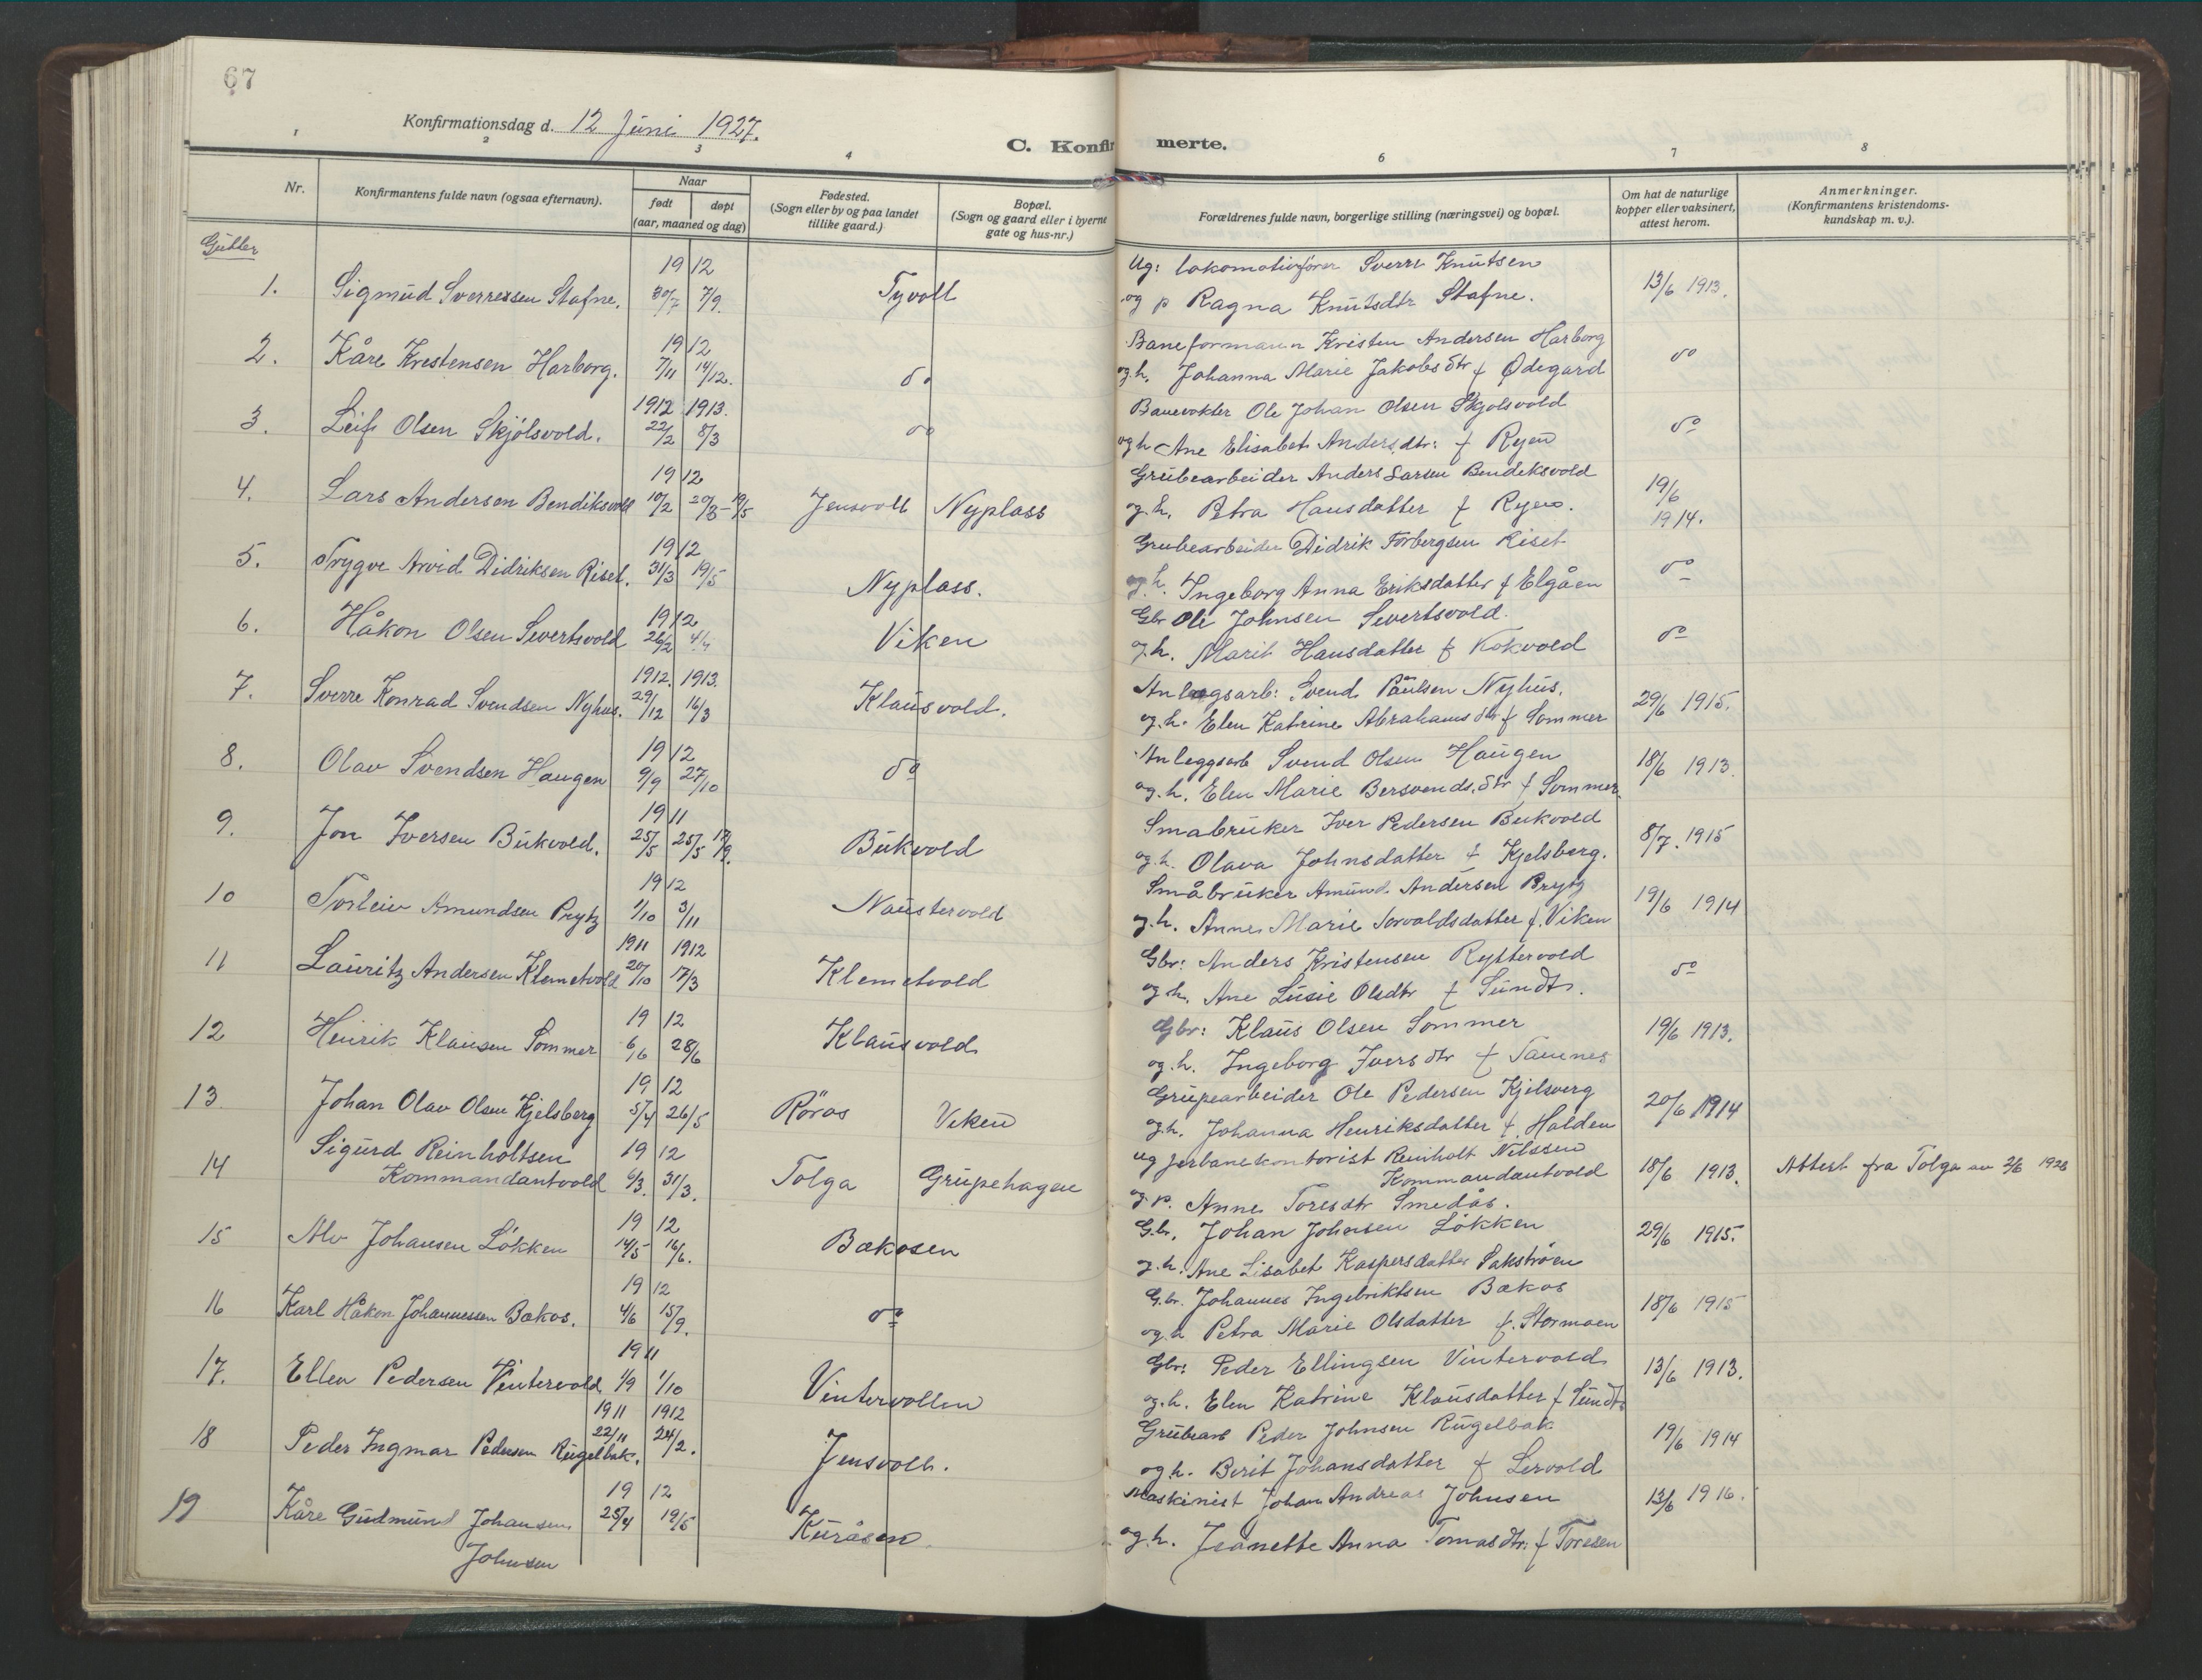 67
Konfirmationsdag d. 12 Juni 1927.
C. Konfirmerte.
1 2 3 4 6 7 8
Nr.
Konfirmantens fulde navn (ogsaa efternavn).
Naar
født døpt
(aar, maaned og dag)
Fødested.
(Sogn eller by og paa landet
tillike gaard.)
Bopæl.
(Sogn og gaard eller i byerne
gate og hus-nr.)
Forældrenes fulde navn, borgerlige stilling (næringsvei) og bopæl.
Om hat de naturlige
kopper eller vaksinert,
attest herom.
Anmerkninger.
(Konfirmantens kristendoms-
kundskap m. v.).
Gutter
1. Sigmud Sverresen Stafne. 1912 30/7 7/9. Tyvoll
Ug: lokomotivfører Sverre Knutsen
og p Ragna Knutsdtr Stafne. 13/6 1913.
2. Kåre Kristensen Harborg. 1912 7/11 14/12. do
Baneformann Kristen Andersen Harborg
og h. Johanna Marie Jakobsdtr f Ødegard do
3. Leif Olsen Skjölsvold. 1912 22/2 1913. 8/3 do
Banevokter Ole Johan Olsen Skjolsvold
og h Ane Elisabet Andersdtr: f Ryen do
4. Lars Andersen Bendiksvold 1912 10/2 20/3-19/5 Jensvoll Nyplass
Grubearbeider Anders Larsen Bendeksvold
og h. Petra Hansdatter f Ryen. 19/6 1914.
5. Trygve Arvid Didriksen Riset. 1912 31/3 19/5 Nyplass.
Grubearbeider Didrik Torbergsen Riset
og h. Ingeborg Anna Eriksdatter f Elgåen do
6. Håkon Olsen Sivertsvold 1912 26/2 4/4 Viken
Gbr Ole Johnsen Sivertsvold.
og h. Marit Hansdatter f Kokvold do
7. Sverre Konrad Svendsen Nyhus. 1912. 29/12 1913. 16/3 Klausvold.
Anlegsarb: Svend Paulsen Nyhus.
og h. Elen Katrine Abrahamsdtr f Sommer 29/6 1915.
8. Olav Svendsen Haugen 1912 9/9 27/10 do
Anleggsarb Svend Olsen Haugen
og h. Elen Marie Bersvends.dtr f Sommer. 18/6 1913.
9. Jon Iversen Bukvold. 1911 25/5 25/5 17/9. Bukvold
Smabruker Iver Pedersen Bukvold
og h. Olava Johnsdatter f Kjelsberg. 8/7. 1915
10 Torleiv Amundsen Prytz 1912 1/10 3/11 Naustervold
Småbruker Amund Andersen Prytz
og h. Anne Marie Torvaldsdatter f. Viken 19/6 1914
11 Lauritz Andersen Klemetvold 1911 20/10 1912 17/3 Klemetvold
Gbr: Anders Kristensen Ryttervold
og h. Ane Lusie Olsdtr f Sundt. do
12 Henrik Klausen Sommer 1912 6/6 28/6 Klausvold
Gbr: Klaus Olsen Sommer
og h. Ingeborg Iversdtr f Tamnes 19/6 1913.
13 Johan Olav Olsen Kjelsberg 1912 5/4 26/5 Röros Viken
Grupearbeider Ole Pedersen Kjelsverg
og h. Johanna Henriksdatter f. Halden 20/6 1914
14 Sigurd Reinholtsen
Kommandantvold 1912 6/3. 31/3. Tolga Grupehagen
ug jerbanekontorist Reinholt Nilssen
Kommandantvold
og p. Anne Toresdtr Smedås. 18/6 1913. Attest fra Tolga av 2/6 1926
15 Alv Johansen Lökken 1912 14/5 16/6. Bækosen
Gbr, Johan Johnsen Lökken
og h. Ane Lisabet Kaspersdatter Sakströen 29/6 1915.
16 Karl Håkon Johannessen Bækos. 1912 4/6 15/9. do
Gbr. Johannes Ingebriktsen Bækos
og h Petra Marie Olsdatter f. Stormoen 18/6 1915
17. Ellen Pedersen Vintervold 1911 1/9 1/10 Vintervollen
Gbr: Peder Ellingsen Vintervold
og h. Elen Katrine Klausdatter f Sundt. 13/6 1913.
18 Peder Ingmar Pedersen Rugelbak. 1911 22/11 1912 24/2. Jensvoll.
Grubearb Peder Johnsen Rugelbak
og h. Berit Johansdatter f Lervold 19/6 1914
19 Kåre Gudmund Johansen
Johnsen 1912 25/4 19/5 Kuråsen
Maskinist Johan Andreas Johnsen
og h. Jeanette Anna Tomasdtr: f Toresen 13/6 1916.